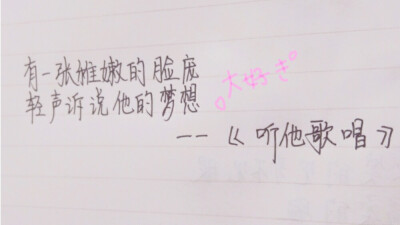 有一张雉嫩的脸庞
轻声诉说他的梦想
。大好き。
——《听他歌唱》